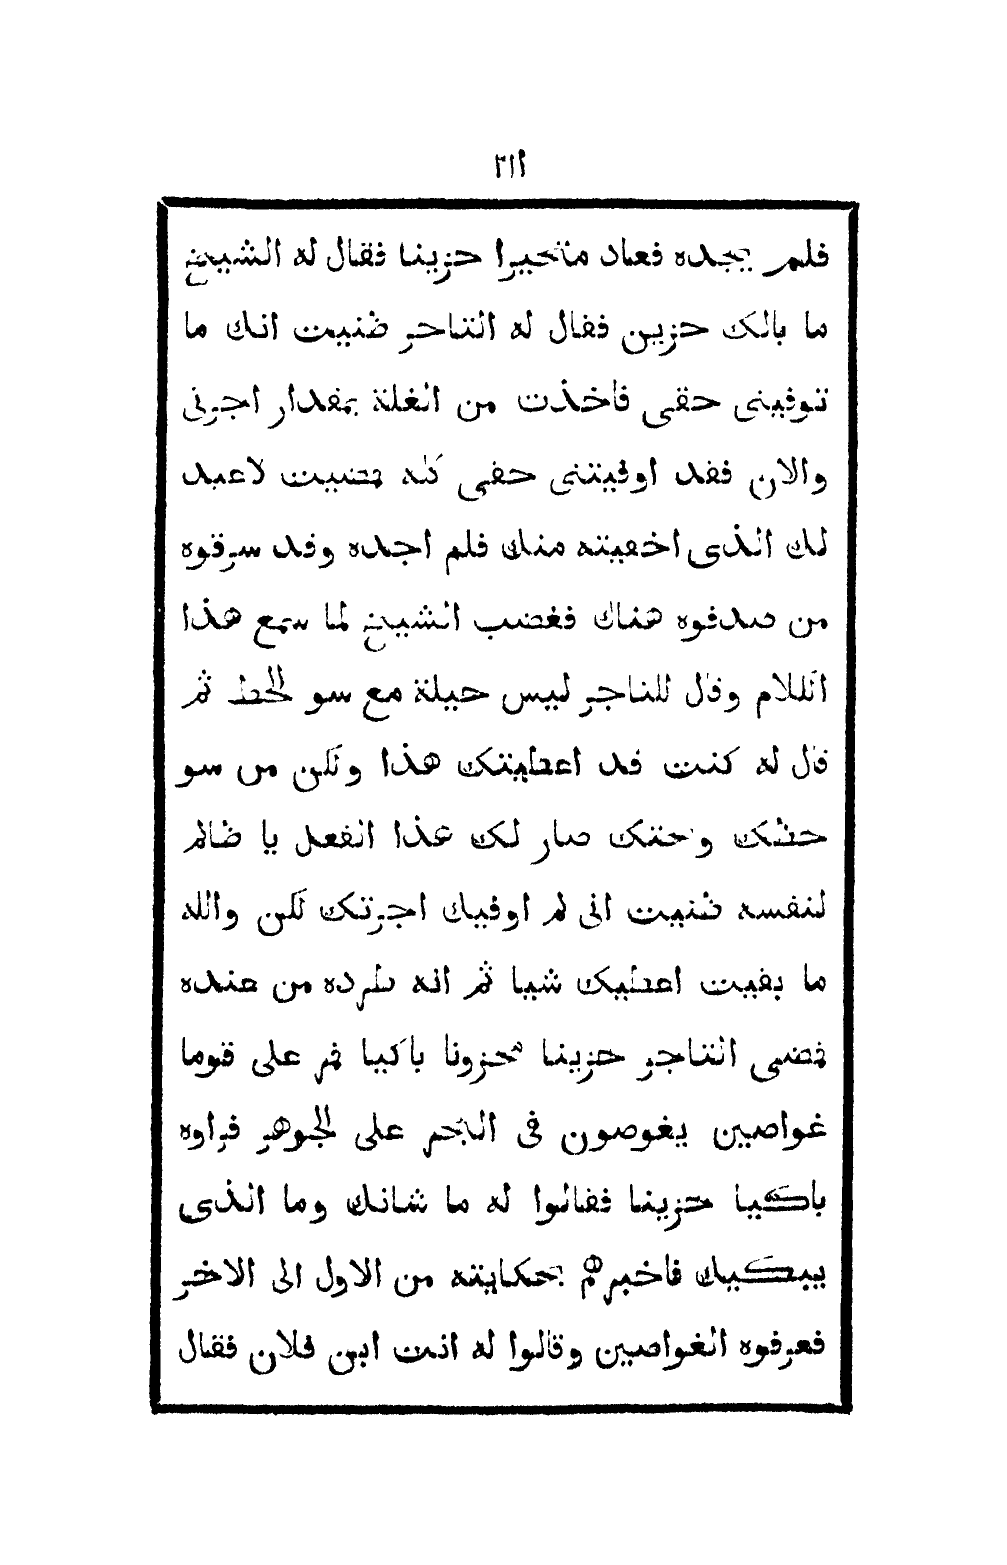 ٢١١
فلم يجده فعاد متحيرا حزينا فقال له الشيخ
ما بالك حزين فقال له التاجر ظنيت انك ما
توفيني حقى فاخذت من الغلة بمقدار اجرتى
والان فقد اوفيتنى حقى كله فضيت لاعيد
لك الذى اخفيته منك فلم اجده وقد سرقوه
من صدفوه هناك فغضب الشيخ لما سمع هذا
الكلام وقال للتاجر ليس حيلة مع سو الحظ ثم
قال له كنت قد اعطيتك هذا ولكن من سو
حظك وبختك صار لك هذا الفعل يا ظالم
لنفسه ظنيت انى لم اوفيك اجرتك لكن والله
ما بقيت اعطيك شيا ثم انه طرده من عنده
فضى التاجر حزينا محزونا باكيا فمر على قوما
غواصين يغوصون فى البحر على الجوهر فراوه
باكيا حزينا فقالوا له ما شانك وما الذى
يبكيك فاخبرهم بحكايته من الاول الى الاخر
فعرفوه الغواصين وقالوا له انت ابن فلان فقال